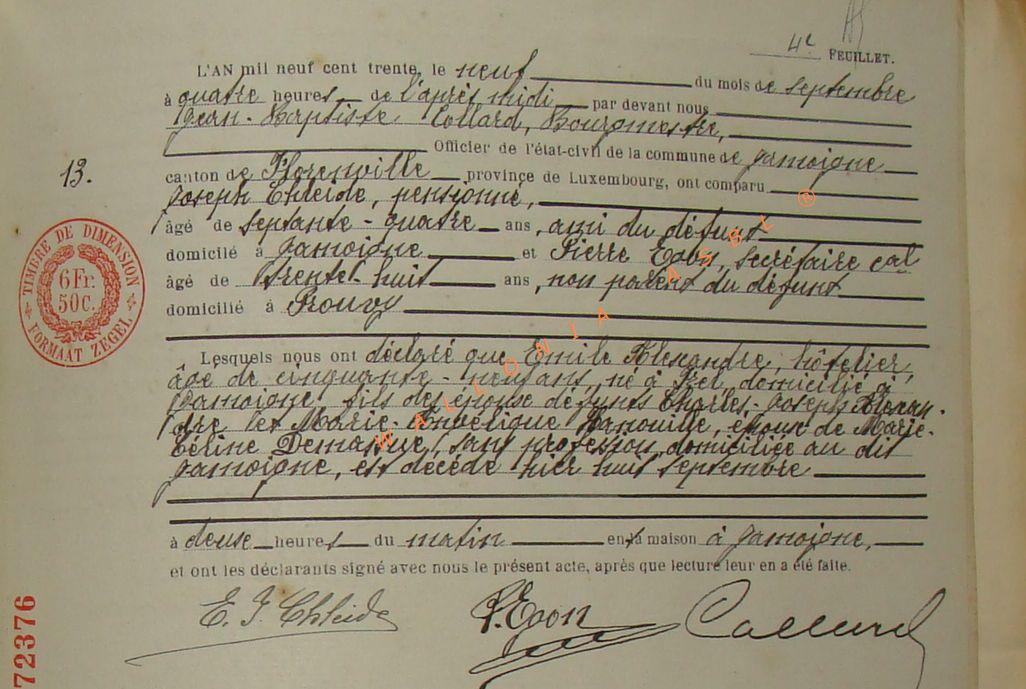 4e FEUILLET.
L'AN mil neuf cent trente, le neuf du mois de septembre
à quatre heures de l'après midi par devant nous
Jean-Baptiste Collard, Bourgmestre,
Officier de l'état-civil de la commune de Jamoigne
13.
canton de Florenville province de Luxembourg, ont comparu
Joseph Chleide, pensionné,
âgé de septante-quatre ans, ami du défunt
domicilié à Jamoigne et Pierre secrétaire cal
âgé de trente-huit ans, non parent du défunt
domicilié à Prouvy
TIMBRE DE DIMENSION
6 Fr.
50 C.
FORMAAT ZEGEL
Lesquels nous ont déclaré que Emile Alexandre, hôtelier,
âgé de cinquante-neuf ans, né à Izel, domicilié à
Jamoigne, fils des époux défunts Charles-Joseph Alexan-
dre et Marie-Angélique épouse de Marie-
sans profession, domiciliée au dit
Jamoigne, est décédé hier huit septembre
à deuse heures du matin en sa maison à Jamoigne,
et ont les déclarants signé avec nous le présent acte, après que lecture leur en a été faite.
E. J. Chleide Collard
72376
WALLONIA ASBL ®